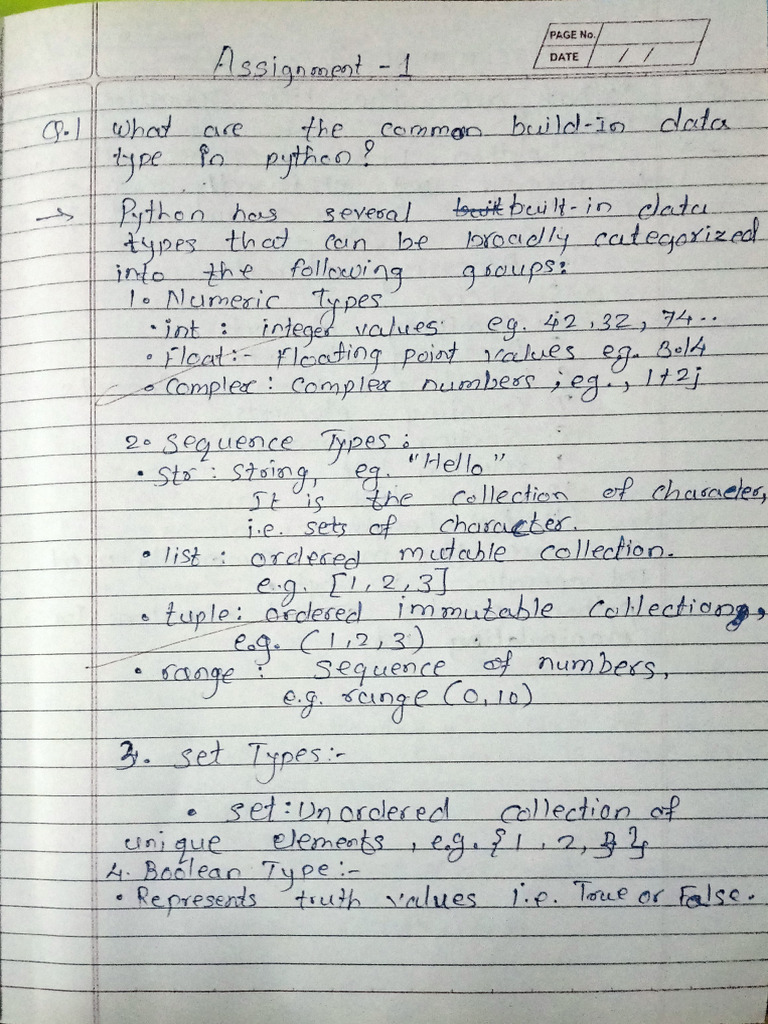 PAGE No.
DATE / /
Assignment - 1
Q.1 What are the common build-in data
type in python?
→ Python has several built-in data
types that can be broadly categorized
into the following groups:
1. Numeric Types
• int : integer values eg. 42, 32, 74..
• Float:- Floating point values eg. 3.14
• Complex : Complex numbers ; eg., 1+2j
2. Sequence Types :
• str : String, eg. "Hello"
It is the collection of character,
i.e. sets of character.
• list : ordered mutable collection.
e.g. [1, 2, 3]
• tuple : ordered immutable collection,
e.g. (1, 2, 3)
• range : sequence of numbers,
e.g. range (0, 10)
3. Set Types:-
• set : Unordered collection of
unique elements, e.g. {1, 2, 3}
4. Boolean Type:-
• Represents truth values i.e. True or False.